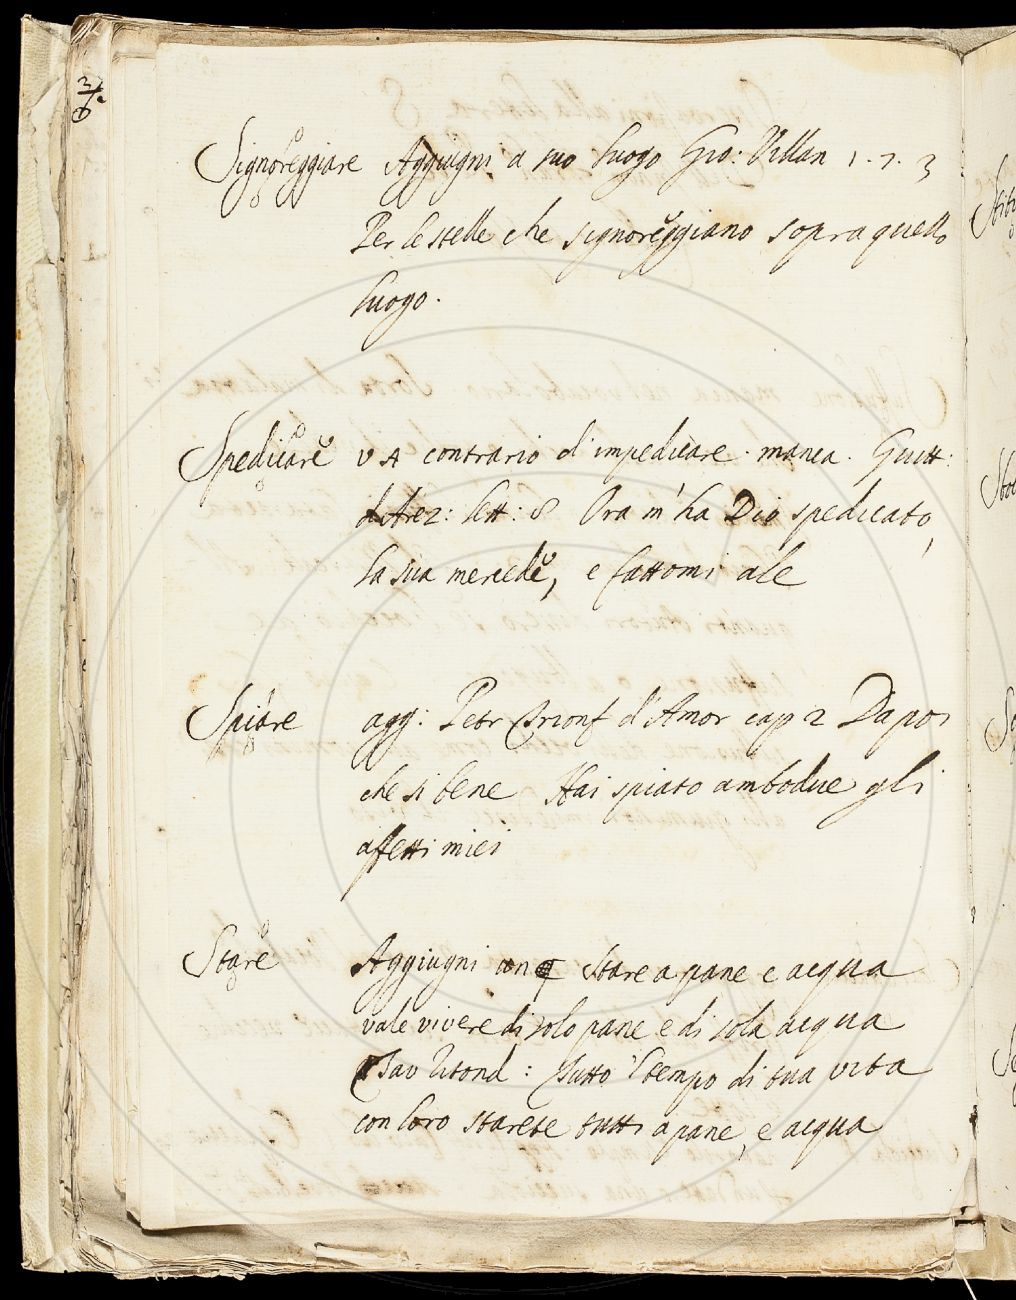 Signoreggiare Aggiugni a suo luogo Gio: Villan 1. 7. 3
Per le stelle che signoreggiano sopra quello
luogo.
Spedicare V A contrario d'impedicare. manca. Guitt:
d'Arez: lett: 8 Ora m'ha Dio spedicato,
la sua mercede, e fattomi ale
Spiare agg: Petr Trionf d'Amor cap 2 Dapoi
che si bene Hai spiato ambodue gli
affetti miei
Stare Aggiugni Stare a pane e acqua
vale vivere di solo pane e di sola acqua
Tav Ritond: Tutto 'l tempo di sua vita
con loro starete tutti a pane, e acqua